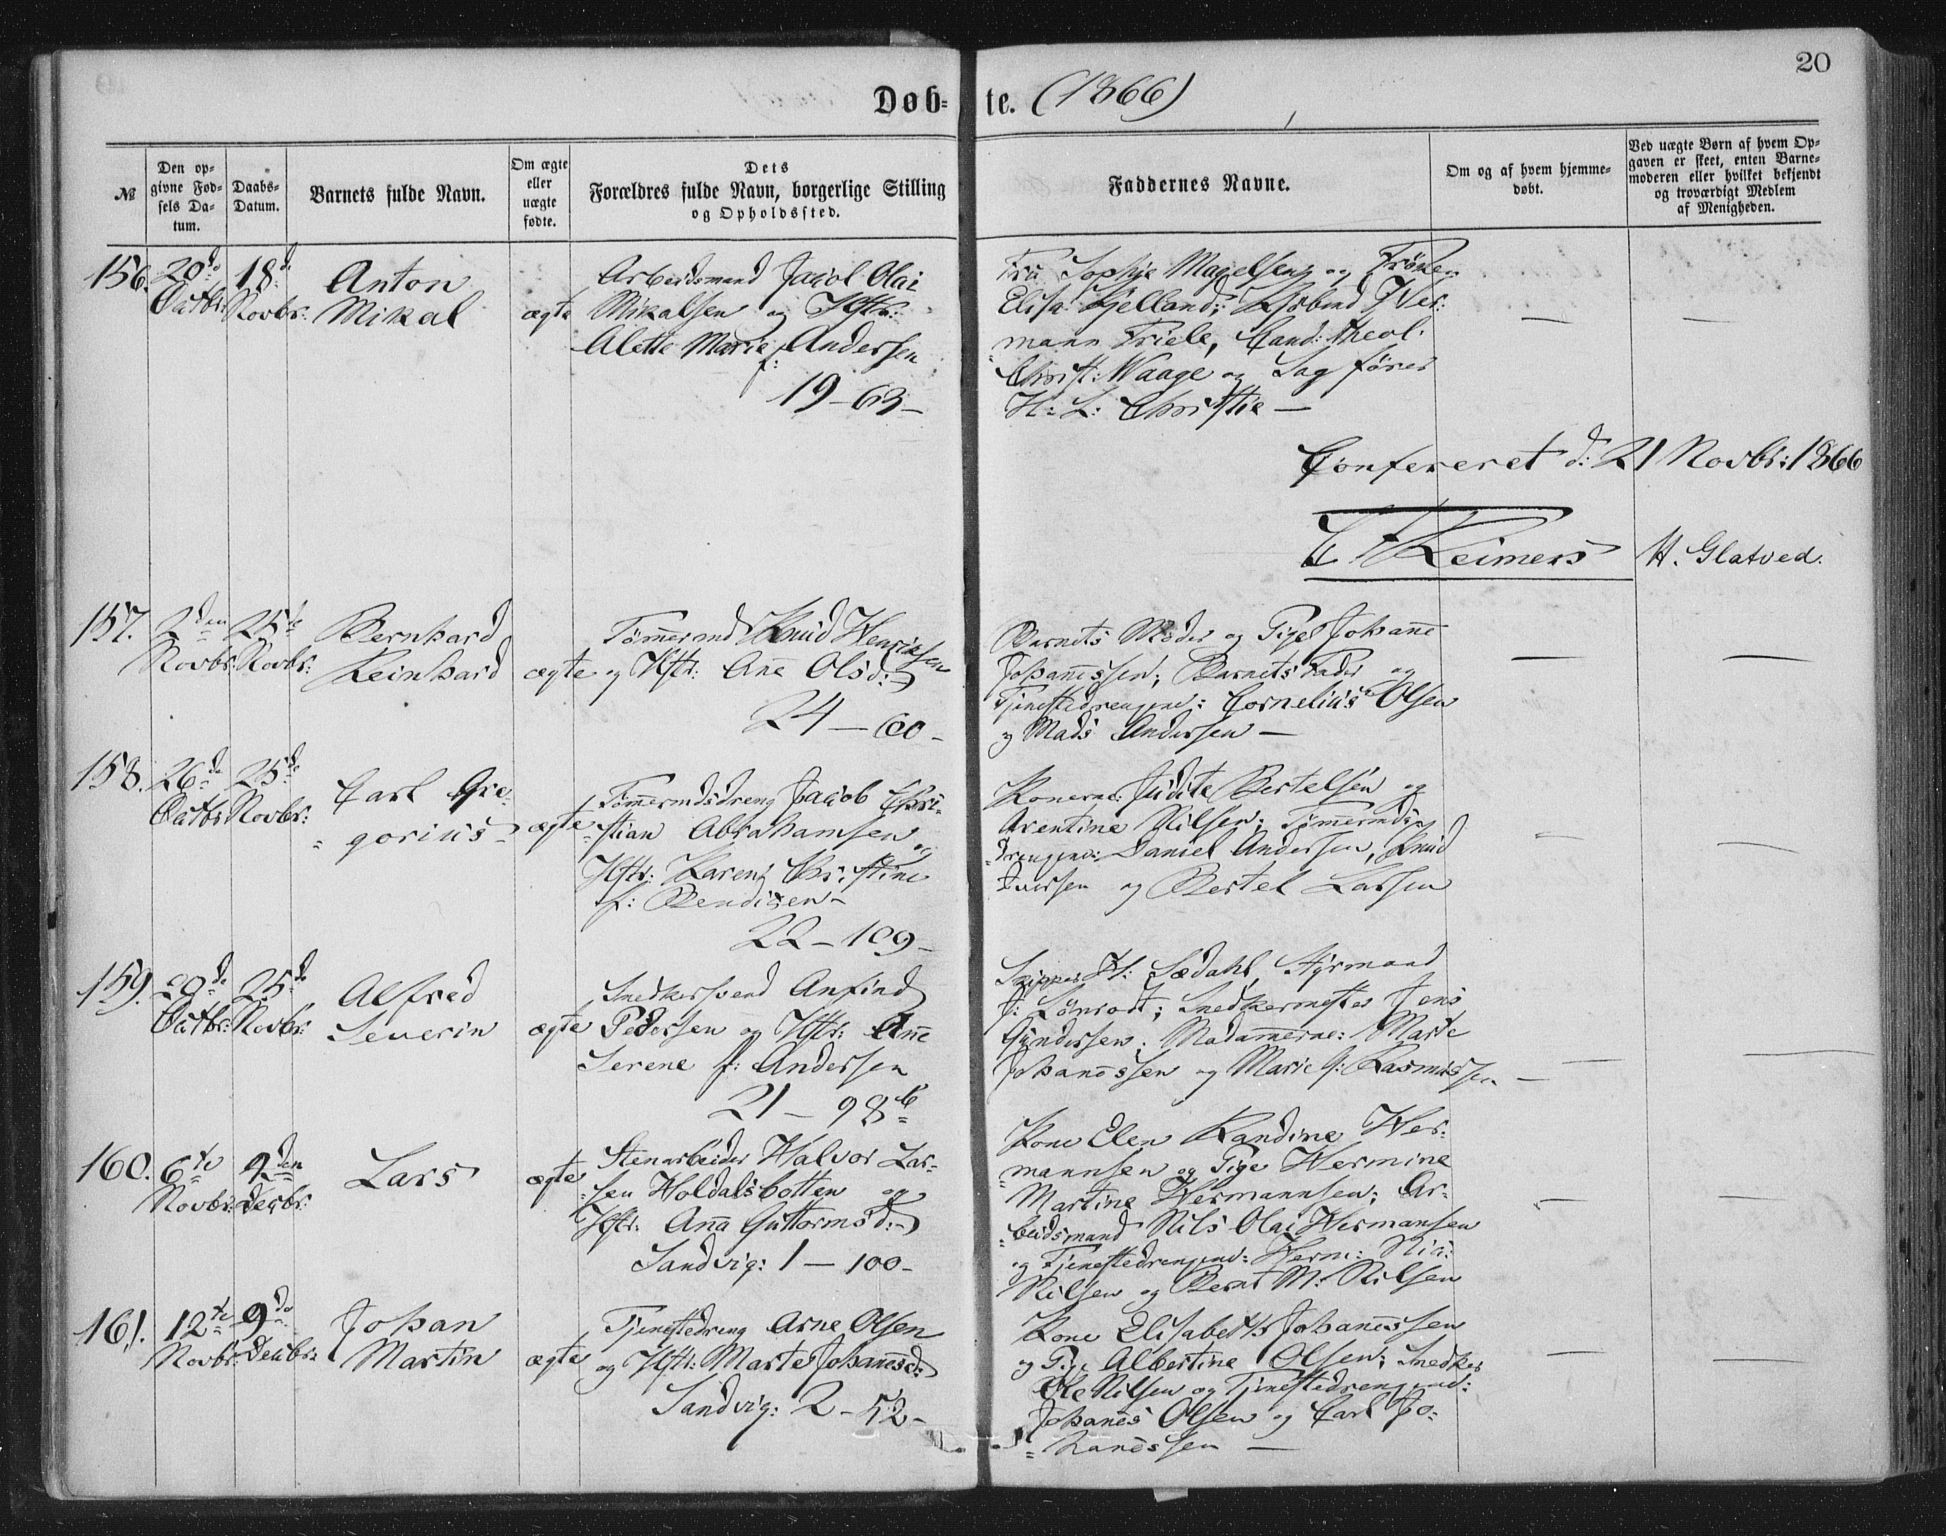 20
Døb-te. (1866)
№
Den op-
givne Fød-
sels Da-
tum.
Daabs-
Datum.
Barnets fulde Navn.
Om ægte
eller
uægte
fødte.
Dets
Forældres fulde Navn, borgerlige Stilling
og Opholdssted.
Faddernes Navne.
Om og af hvem hjemme-
døbt.
Ved uægte Børn af hvem Op-
gaven er skeet, enten Barne-
moderen eller hvilket bekjendt
og troværdigt Medlem
af Menigheden.
156.
20de
Octbr:
18de
Novbr:
Anton
Mikal
ægte
Arbeidsmand Jacob Olai
Mikalsen og Hstr:
Alette Marie f: Andersen
19 - 63 -
Fru Sophie Magelsen og Frøken
Elisa Kjelland; Kjøbmd Her-
mann Friele, Cand: theol.
Christ: Waage og Sagfører
H: L: Christie —
Confereret d: 21 Novbr: 1866
Reimers
H. Glatved.
157.
2den
Novbr:
25de
Novbr:
Bernhard
Reinhard
ægte
Tømermd Knud Henriksen
og Hstr: Ane Olsd:
24 - 60 -
Barnets Moder og Pige Johane
Johanessen; Barnets Fader og
Tjenestedrengene: Cornelius Olsen
og Mads Andersen —
158.
26de
Octbr:
25de
Novbr:
Carl Gre-
gorius
ægte
Tømermdsdreng Jacob Chri-
stian Abrahamsen og
Hstr: Karen Christine
f: Bendixen -
22 - 109 -
Konerne: Judite Bertelsen og
Arentine Nilsen; Tømermds-
drengene: Daniel Andersen, Knud
Iversen og Bertel Larsen
159.
29de
Octbr:
25de
Novbr:
Alfred
Severin
ægte
Snedkersvend Anfind
Pedersen og Hstr: Ane
Serene f: Andersen
21 - 98b
Skipper H: Sædahl, Styrmand
Snedkermester Jens
Gundersen; Madamerne: Marte
Johanessen og Marie G: Rasmussen —
160.
6te
Novbr:
9den
Decbr:
Lars
ægte
Stenarbeider Halvor Lar-
sen Holdalsbotten og
Hstr: Ana Guttormsd:
Sandvig: 1 - 100 -
Kone Elen Randine Her-
mannsen og Pige Hermine
Martine Hermannsen; Ar-
beidsmand Nils Olai Hermansen
og Tjenestedrengene: Herm: Nic:
Nilsen og Bernt M: Nilsen
161.
12te
Novbr:
9de
Decbr:
Johan
Martin
ægte
Tjenestedreng Arne Olsen
og Hstr: Marte Johanesd:
Sandvig: 2 - 52 -
Kone Elisabeth Johanessen
og Pige Albertine Olsen; Snedker
Ole Nilsen og Tjenestedrengene:
Johanes Olsen og Carl Jo-
hanessen —